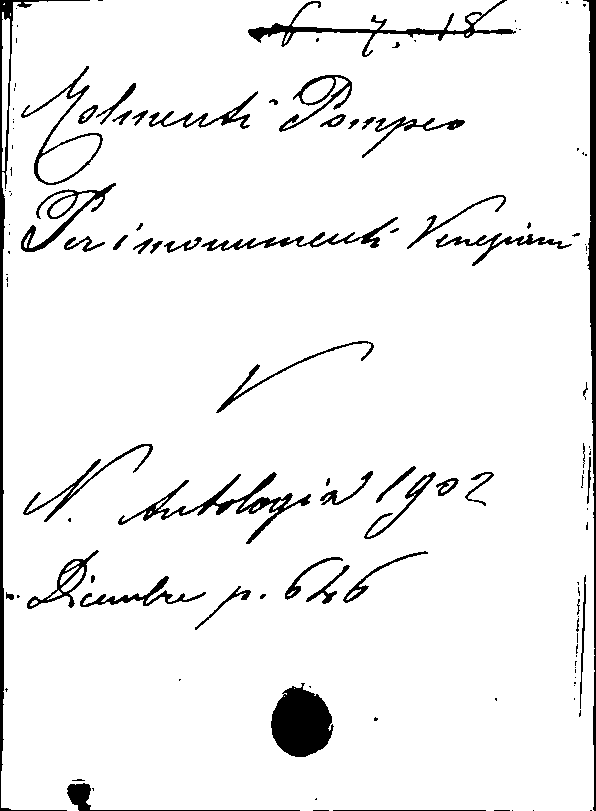 6. 7. 18
Molmenti Pompeo
Per i monumenti Veneziani
V
N. Antologia 1902
Dicembre p. 646